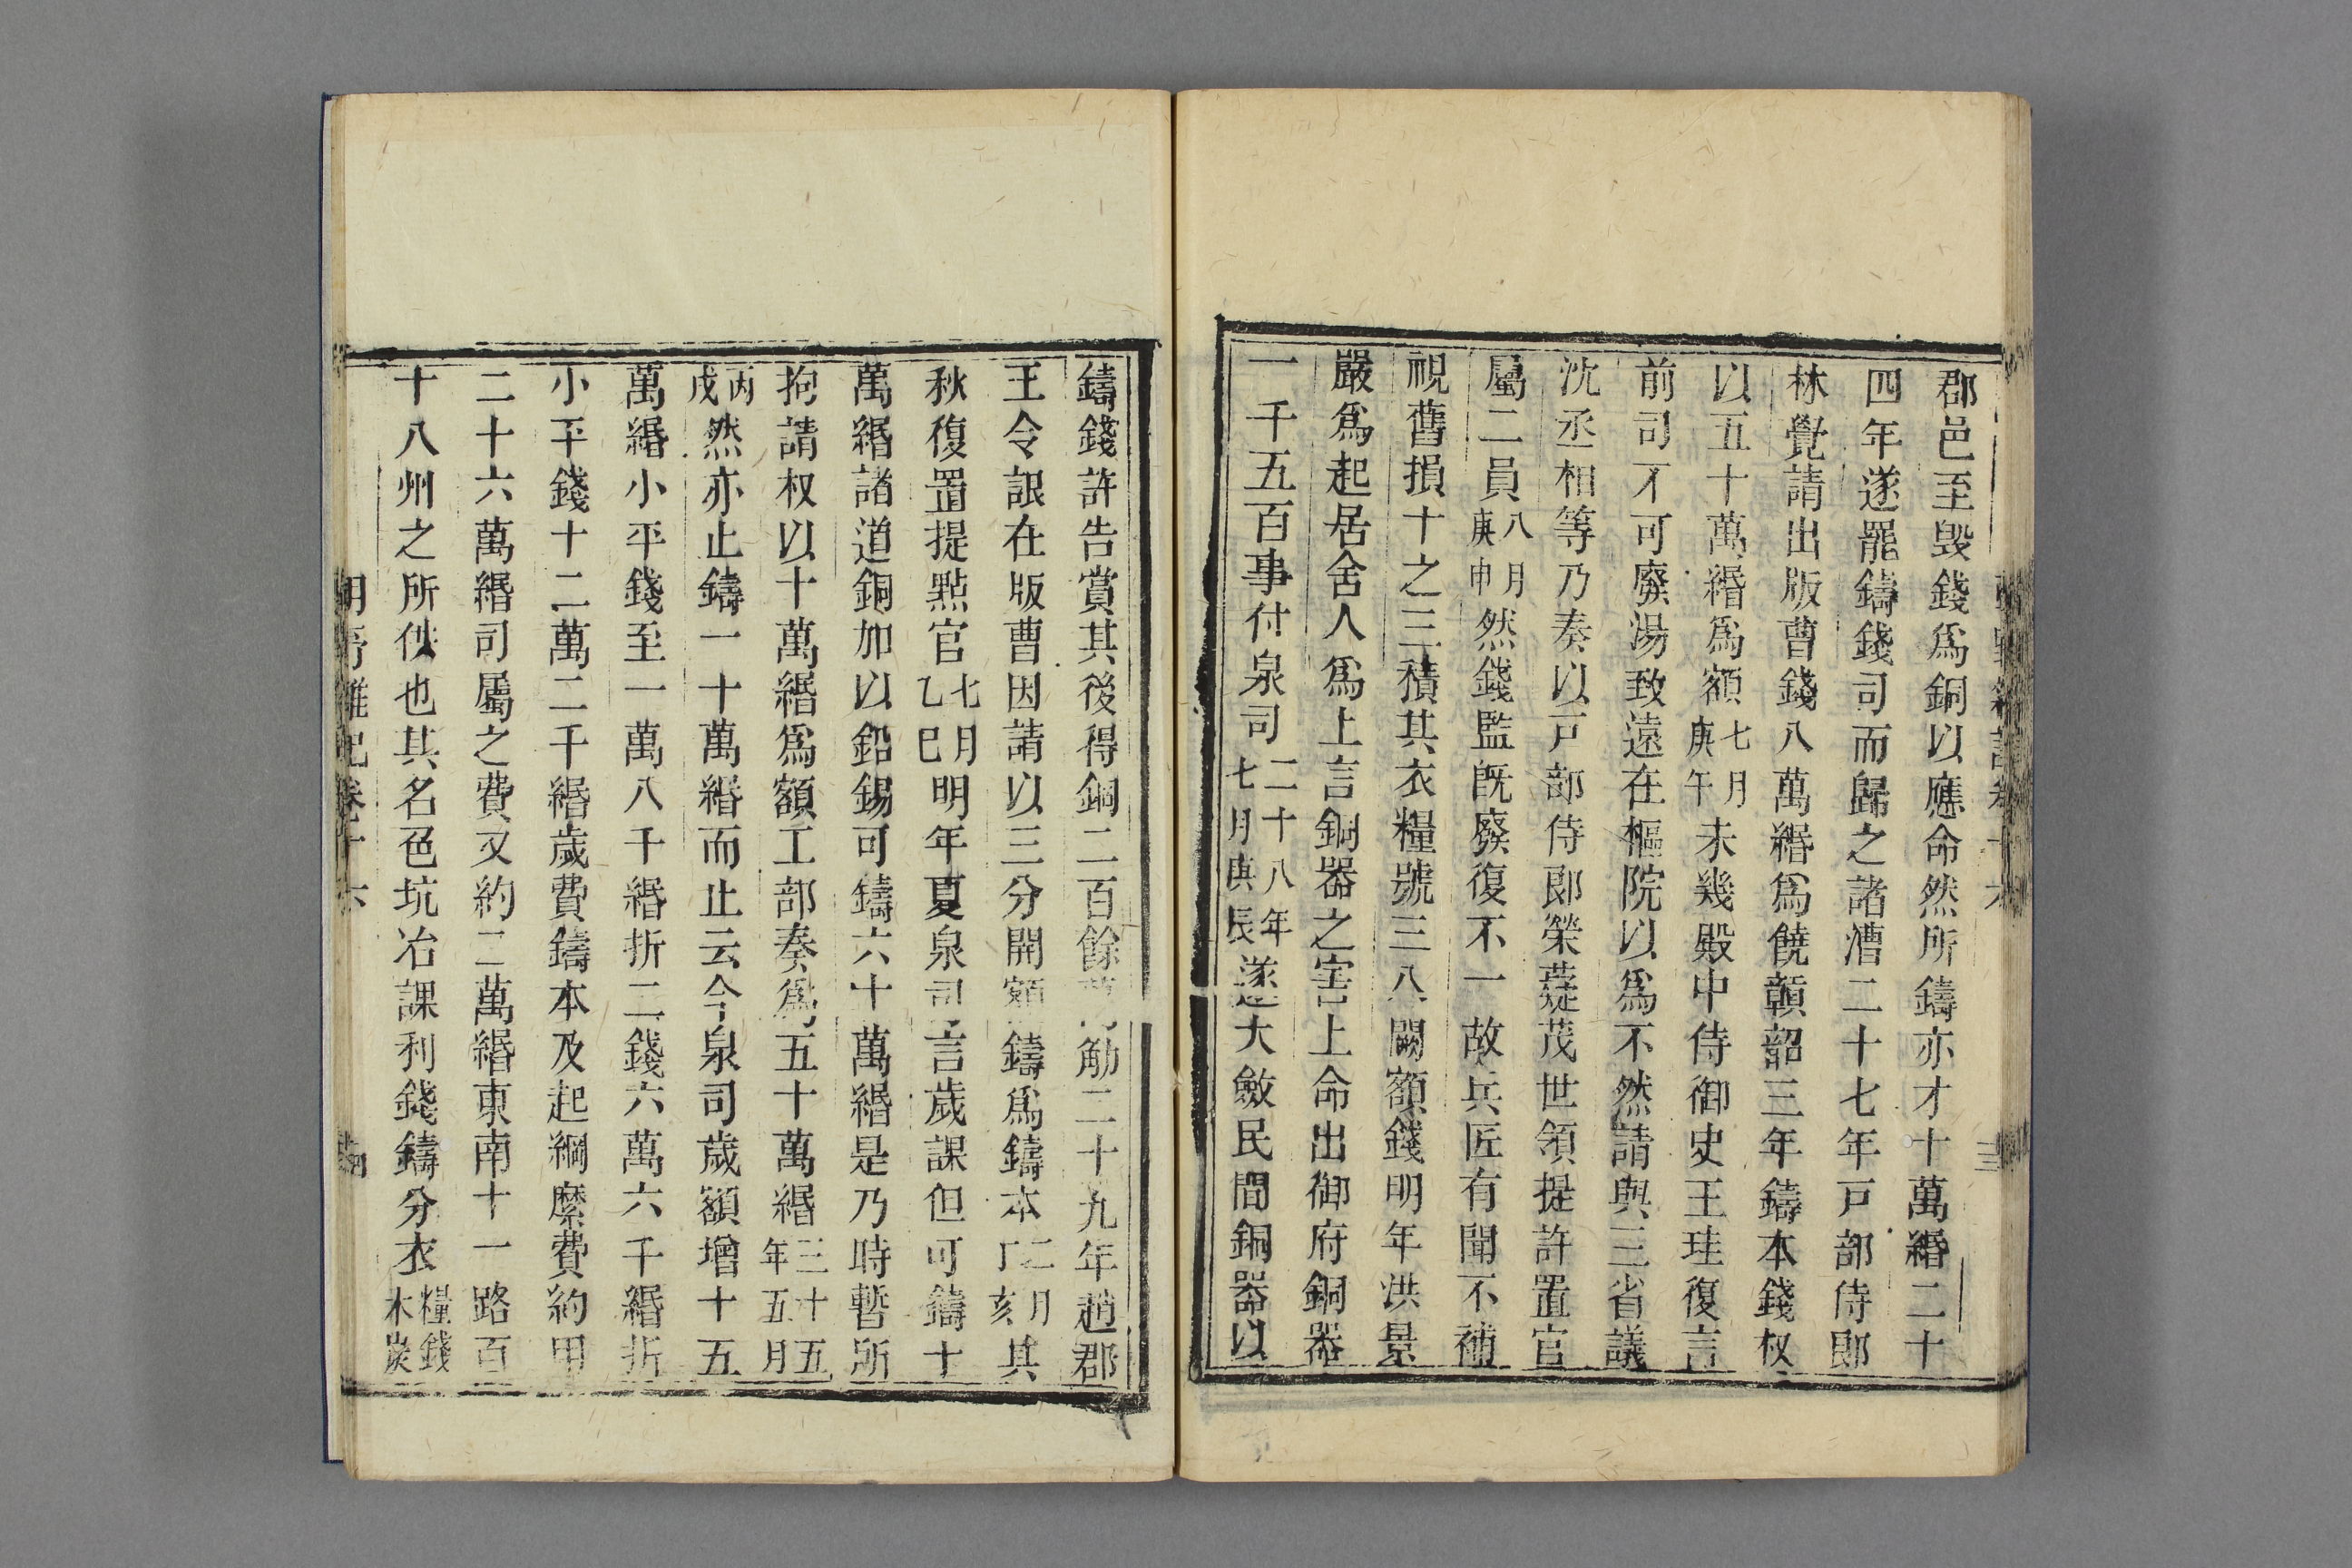 郡邑至毁錢爲銅以應命然所鑄亦才十萬緡二十
四年遂罷鑄錢司而歸之諸漕二十七年戸部侍郎
林覺請出版曹錢八萬緡爲饒贛韶三年鑄本錢权
以五十萬緡爲額七月庚午未幾殿中侍御史王珪復言
前司不可廢湯致遠在樞院以爲不然請與三省議
沈丞相等乃奏以戸部侍郎榮薿茂世領提許置官
屬二員八月庚申然錢監旣廢復不一故兵匠有闕不補
視舊損十之三積其衣糧號三八闕額錢明年洪景
嚴爲起居舍人爲上言銅器之害上命出御府銅器
一千五百事付泉司二十八年七月庚辰遂大斂民間銅器以
鑄錢許告賞其後得銅二百餘萬觔二十九年趙郡
王令詪在版曹因請以三分開額鑄爲鑄本二月丁亥其
秋復置提點官七月乙巳明年夏泉司言歲課但可鑄十
萬緡諸道銅加以鉛錫可鑄六十萬緡是乃時暫所
拘請权以十萬緡爲額工部奏爲五十萬緡三十五年五月
丙戌然亦止鑄一十萬緡而止云今泉司歲額增十五
萬緡小平錢至一萬八千緡折二錢六萬六千緡折
小平錢十二萬二千緡歲費鑄本及起綱縻費約用
二十六萬緡司屬之費又約二萬緡東南十一路百
十八州之所供也其名色坑冶課利錢鑄分衣糧錢木炭